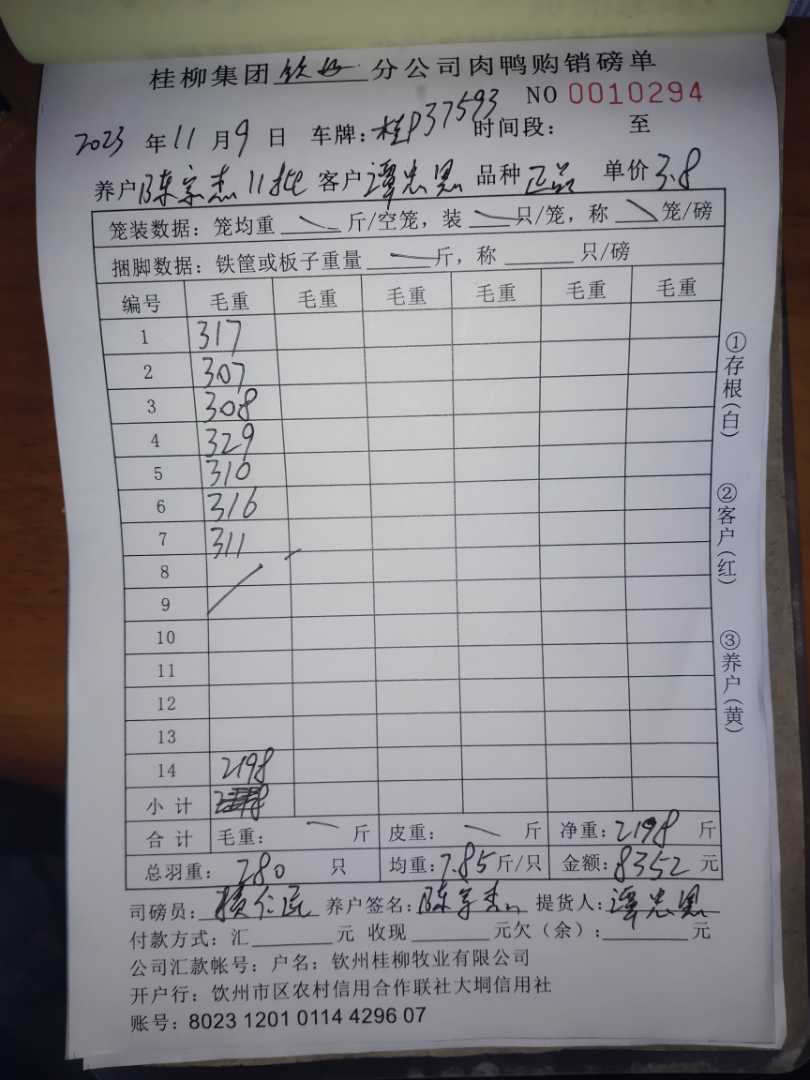 桂柳集团钦州分公司肉鸭购销磅单
NO 0010294
2023 年 11 月 9 日 车牌：桂P37593 时间段： 至
养户 陈宗杰11批 客户 谭忠恩 品种 正品 单价 3.8
笼装数据：笼均重 斤/空笼，装 只/笼，称 笼/磅
捆脚数据：铁筐或板子重量 斤，称 只/磅
编号 毛重 毛重 毛重 毛重 毛重 毛重
1 317
2 307
3 308
4 329
5 310
6 316
7 311
8
9
10
11
12
13
14 2198
小计
合计 毛重： 斤 皮重： 斤 净重：2198 斤
总羽重：280 只 均重：7.85 斤/只 金额：8352 元
司磅员： 养户签名：陈宗杰 提货人：谭忠恩
付款方式：汇 元 收现 元欠（余）： 元
公司汇款帐号：户名：钦州桂柳牧业有限公司
开户行：钦州市区农村信用合作联社大垌信用社
账号：8023 1201 0114 4296 07
①存根（白）
②客户（红）
③养户（黄）